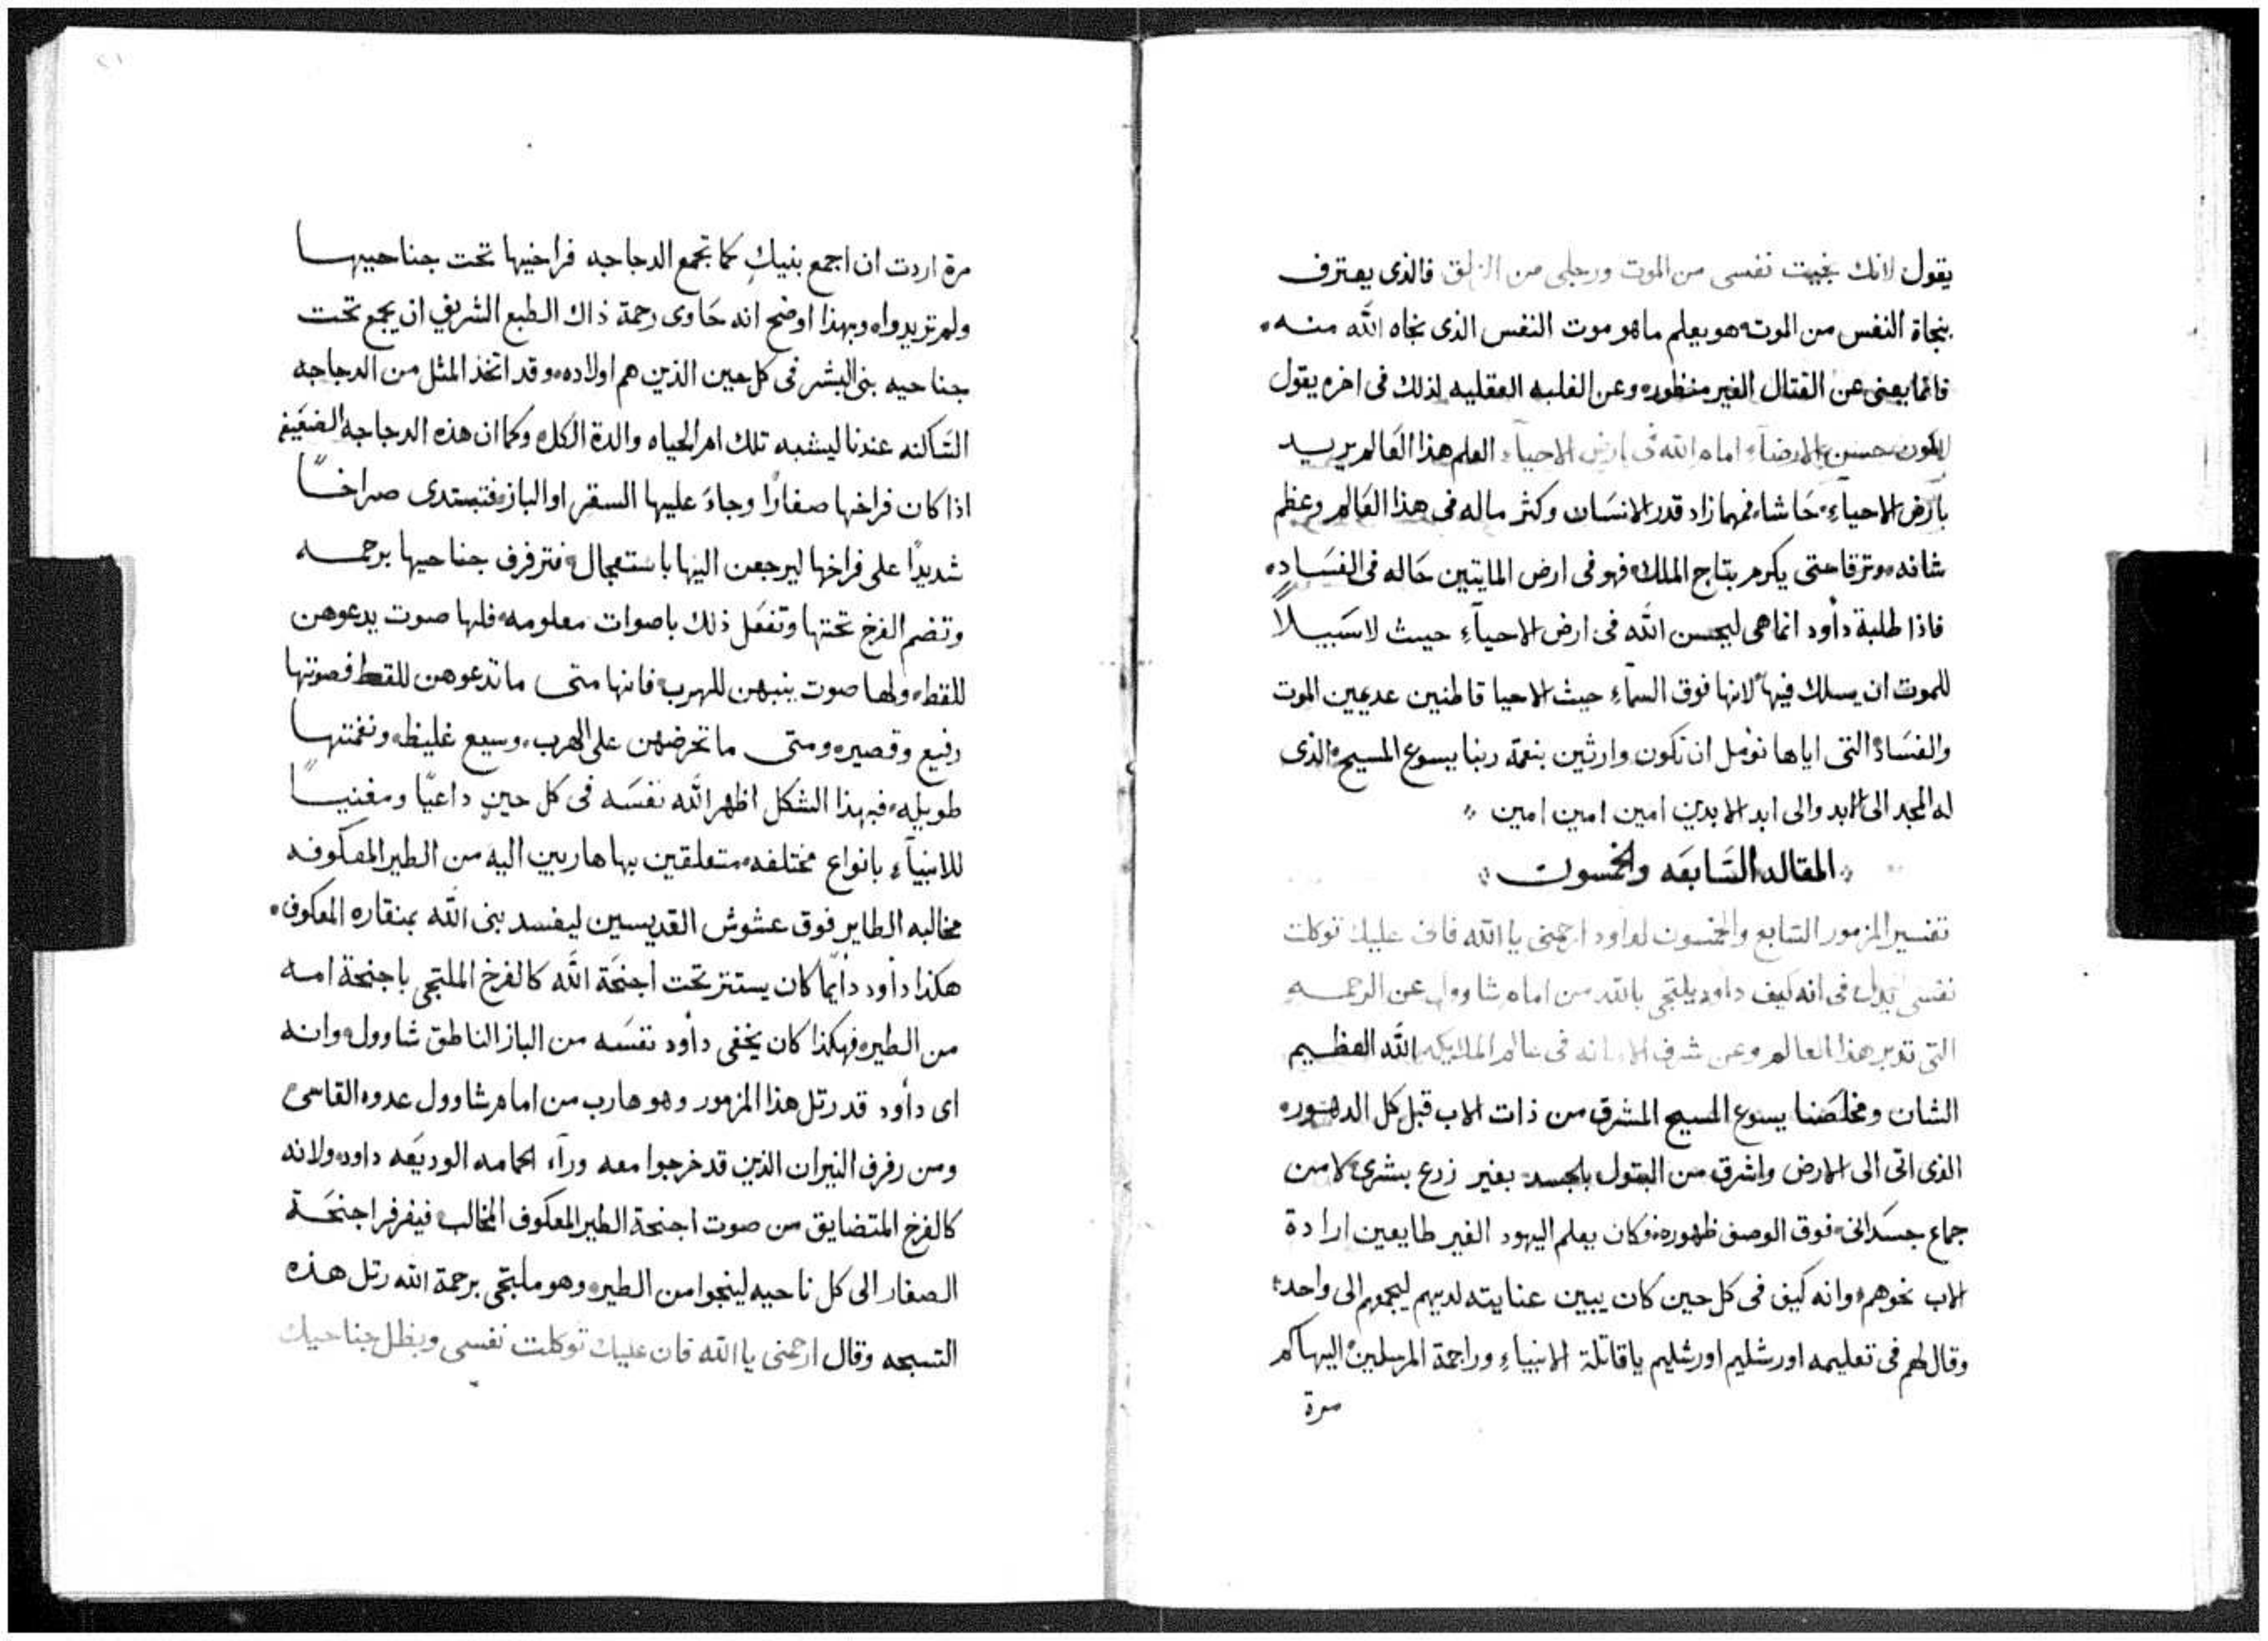 يقول لانك نجيت نفسى من الموت ورجلى من الزلق فالذى يعترف
بنجاة النفس من الموت هو يعلم ما هو موت النفس الذى نجاه الله منه
فانما يعنى عن القتال الغير منظوره وعن الغلبه العقليه لذلك فى اخره يقول
حسن الارضاء امام الله فى ارض الاحياء العلم هذا العالم يريد
بارض الاحياء حاشا فمهما زاد قدر الانسان وكثر ماله فى هذا العالم وعظم
شانه وترقا حتى يكرم بتاج الملك فهو فى ارض المايتين حاله فى الفساد
فاذا طلبة داود انما هى ليحسن الله فى ارض الاحياء حيث لا سبيلاً
للموت ان يسلك فيها لانها فوق السماء حيث الاحيا قاطنين عديمين الموت
والفساد التى اياها نؤمل ان نكون وارثين بنعمة ربنا يسوع المسيح الذى
له المجد الى الابد والى ابد الابدين امين امين امين
المقاله السابعه والخمسون
تفسير المزمور السابع والخمسون لداود ارحمنى يا الله فان عليك توكلت
نفسى يدل فى انه كيف داود يلتجى بالله من امام شاوول عن الرحمه
التى تدبر هذا العالم وعن شرف الامانه فى عالم الملايكه الله العظيم
الشان ومخلصنا يسوع المسيح المشرق من ذات الاب قبل كل الدهور
الذى اتى الى الارض واشرق من البتول بالجسد بغير زرع بشرى لا من
جماع جسدانى فوق الوصف ظهوره فكان يعلم اليهود الغير طايعين ارادة
الاب نحوهم وانه كيف فى كل حين كان يبين عنايته لديهم ليجمعهم الى واحد
وقال لهم فى تعليمه اورشليم اورشليم يا قاتلة الانبياء وراجمة المرسلين اليها كم
مرة
مرة اردت ان اجمع بنيكِ كما تجمع الدجاجه فراخيها تحت جناحيها
ولم تريدوا وبهذا اوضح انه حاوى رحمة ذاك الطبع الشريف ان يجمع تحت
جناحيه بنى البشر فى كل حين الذين هم اولاده وقد اتخذ المثل من الدجاجه
الساكنه عندنا ليشبه تلك ام الحياه والدة الكل وكما ان هذه الدجاجه الضعيفه
اذا كان فراخها صغارًا وجاء عليها السقر او الباز فتبتدى صراخًا
شديدًا على فراخها ليرجعن اليها باستعجال فترفرف جناحيها برحمه
وتضم الفرخ تحتها وتفعل ذلك باصوات معلومه فلها صوت يدعوهن
للقط ولها صوت ينبهن للهرب فانها متى ما تدعوهن للقط فصوتها
رفيع وقصير ومتى ما تحرضهن على الهرب وسيع غليظ ونغمتها
طويله فبهذا الشكل اظهر الله نفسه فى كل حين داعيًا ومغنيًا
للانبياء بانواع مختلفه متعلقين بها هاربين اليه من الطير المعكوفه
مخالبه الطاير فوق عشوش القديسين ليفسد بنى الله بمنقاره المعكوف
هكذا داود دايمًا كان يستتر تحت اجنحة الله كالفرخ الملتجى باجنحة امه
من الطير فهكذا كان يخفى داود نفسه من الباز الناطق شاوول وانه
اى داود قد رتل هذا المزمور وهو هارب من امام شاوول عدوه القاسى
ومن رفرف النيران الذين قد خرجوا معه وراء الحمامه الوديعه داود ولانه
كالفرخ المتضايق من صوت اجنحة الطير المعكوف المخالب فيفرفر اجنحة
الصغار الى كل ناحيه لينجوا من الطير وهو ملتجى برحمة الله رتل هذه
التسبحه وقال ارحمنى يا الله فان عليك توكلت نفسى وبظل جناحيك